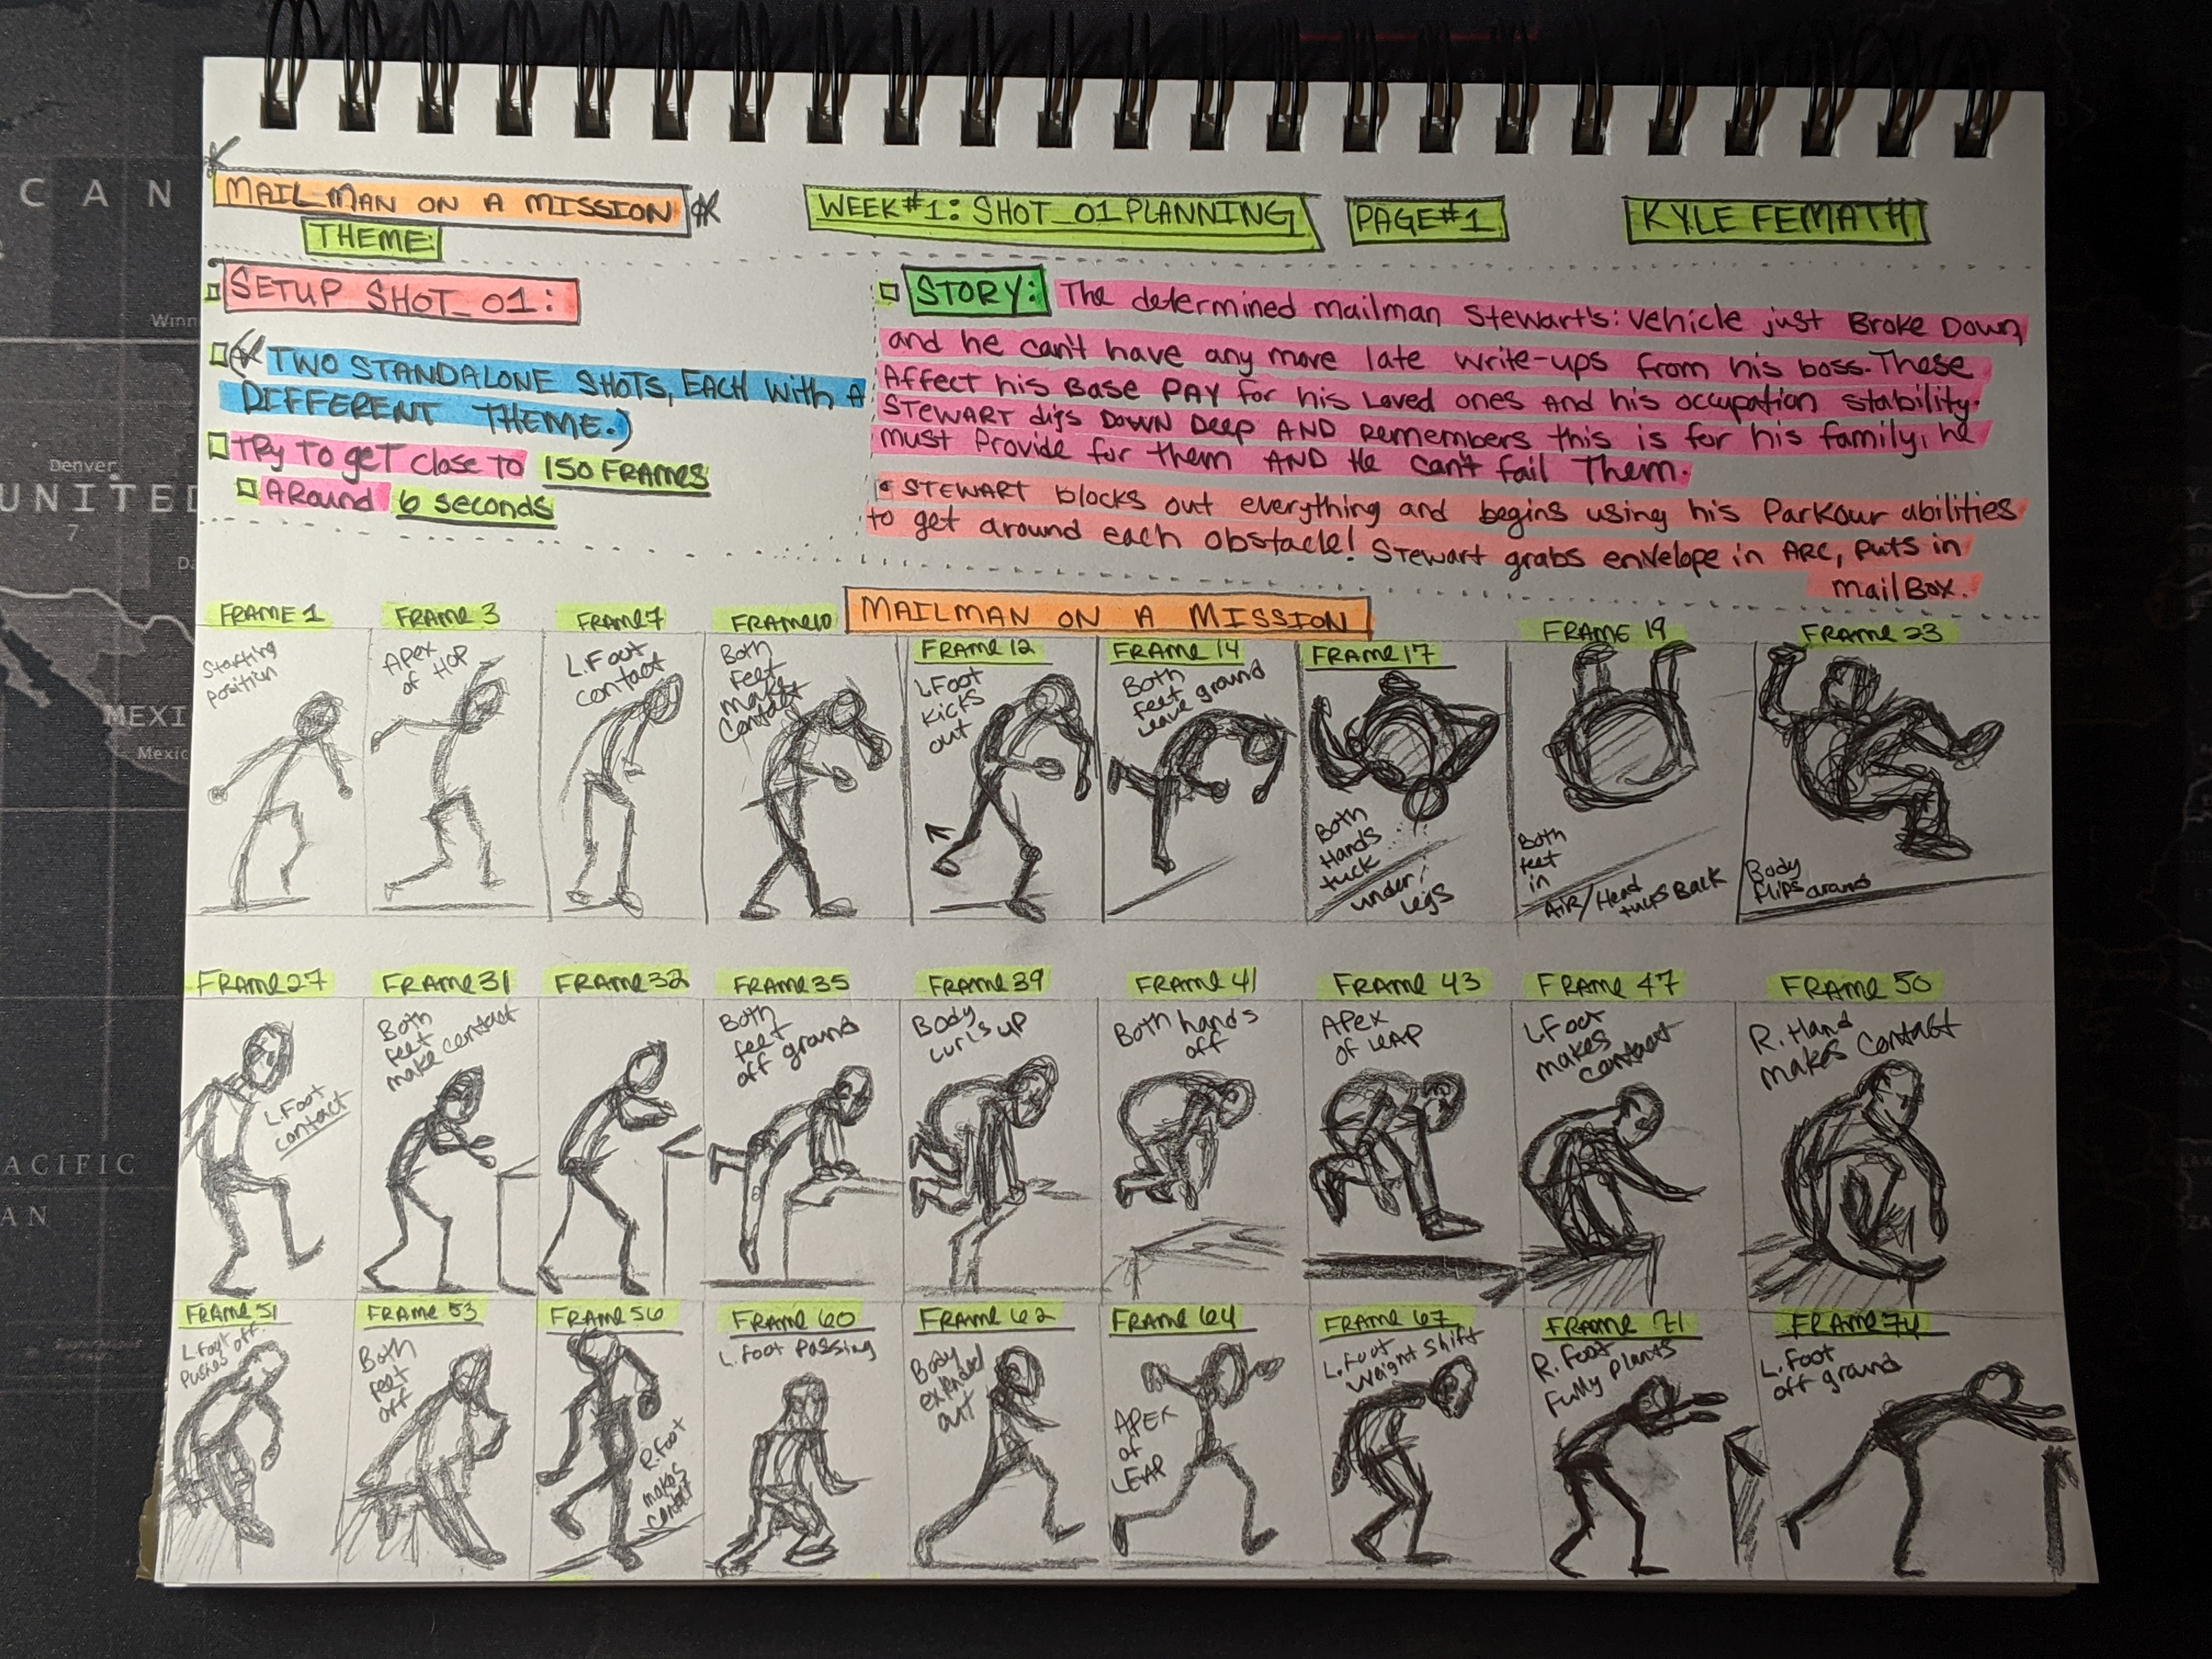 MAILMAN ON A MISSION
THEME:
WEEK#1: SHOT_01 PLANNING
PAGE#1
KYLE FEMATH
SETUP SHOT_01:
TWO STANDALONE SHOTS, EACH with A
DIFFERENT THEME.)
TRY TO geT Close TO 150 FRAMES
AROUND 6 seconds
STORY: The determined mailman Stewart's: vehicle just Broke Down,
and he can't have any more late write-ups from his boss. These
Affect his Base PAY for his Loved ones And his occupation stability.
STEWART digs DOWN Deep AND Remembers this is for his family, he
must Provide for them AND He can't fail Them.
STEWART blocks out everything and begins using his Parkour abilities
to get around each obstacle! Stewart grabs envelope in ARC, puts in
mailBox.
MAILMAN ON A MISSION
FRAME 1
Starting
position
FRAME 3
APex
of HOP
FRAME 7
L.Foot
contact
FRAME 10
Both
Feet
make
contact
FRAME 12
L.Foot
kicks
out
FRAME 14
Both
feet ground
leave
FRAME 17
Both
Hands
tuck
under
legs
FRAME 19
Both
feet
in
AiR/Head
tucks Back
FRAME 23
Body
flips around
FRAME 27
L.Foot
contact
FRAME 31
Both
feet
make contact
FRAME 32
FRAME 35
Both
feet
off ground
FRAME 39
Body
curls up
FRAME 41
Both hands
off
FRAME 43
APex
of LEAP
FRAME 47
L.Foot
makes
contact
FRAME 50
R. Hand
makes contact
FRAME 51
L.Foot
pushes off
FRAME 53
Both
feet
off
FRAME 56
R.Foot
makes
contact
FRAME 60
L.Foot Passing
FRAME 62
Body
extended
out
FRAME 64
APEX
of
LEAP
FRAME 67
L.Foot
weight shift
FRAME 71
R.Foot
Fully plants
FRAME 74
L.Foot
off ground
CAN
Winn
Denver
UNITED
7
MEXI
Mexic
ACIFIC
AN